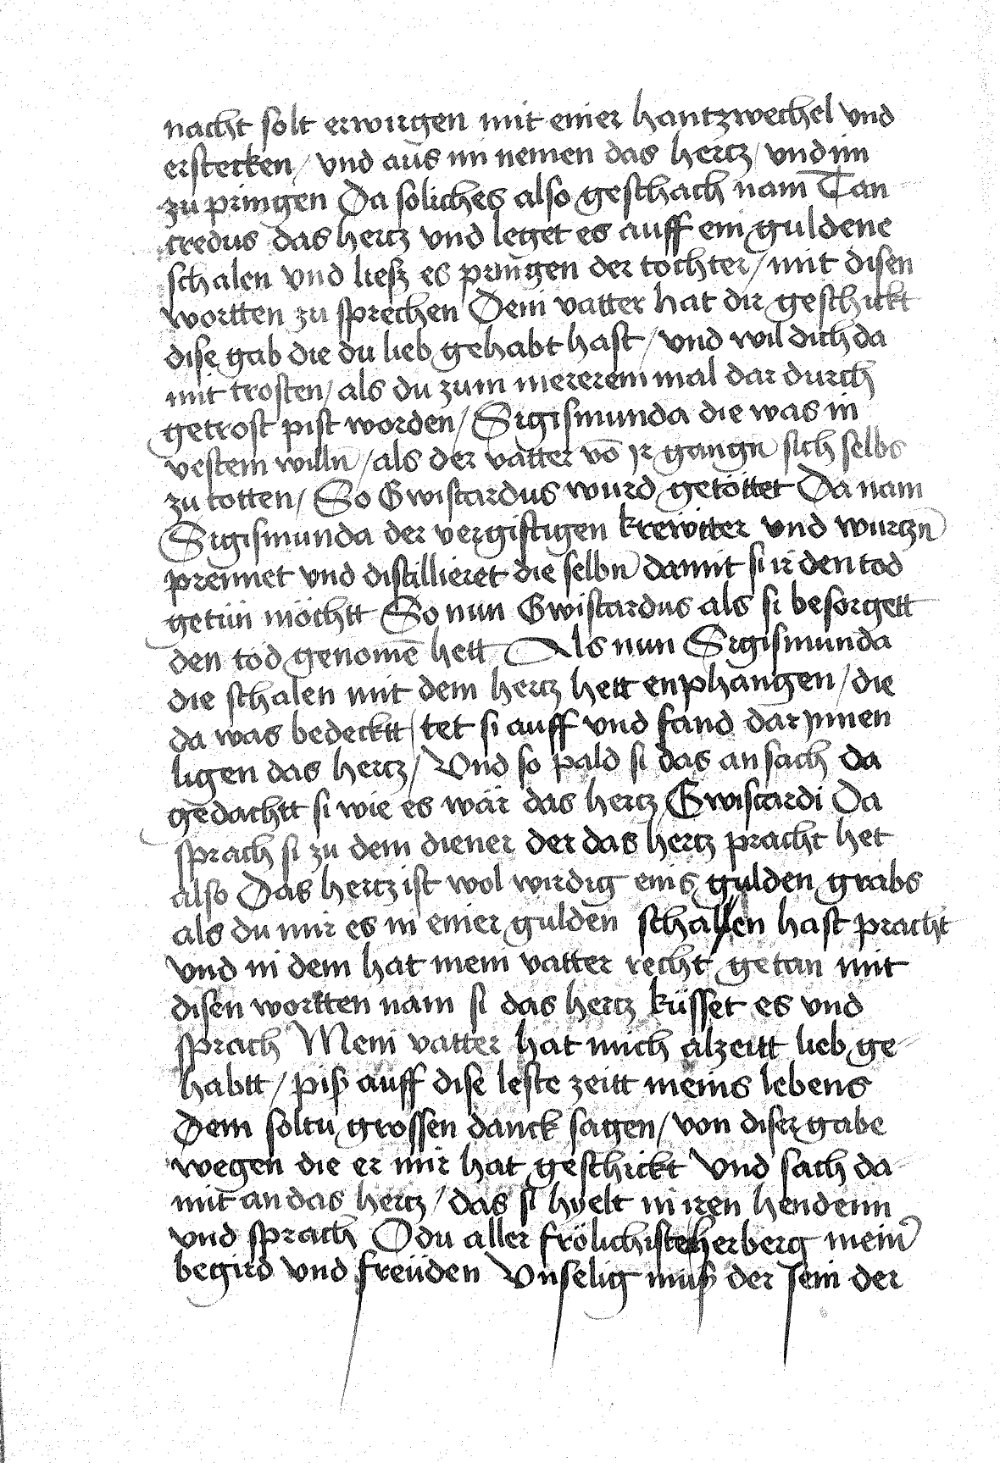 nacht solt erwirgen mit einer hantzwechel vnd
erstecken / vnd aus im nemen das hertz / vnd im
zu pringen Da soliches also geschach nam Tan
credus das hertz vnd leget es auff ein guldene
schalen vnd liesz es pringen der tochter / mit disen
wortten zu sprechen Dein vatter hat dir geschickt
dise gab die du lieb gehabt hast / vnd wil dich da
mit trosten / als du zum mererem mal dar durch
getrost pist worden / Sigismunda die was in
vestem willn̄ / als der vatter vō jr gangn̄ sich selbs
zu totten / So Gwiscardus wurd getöttet Da nam
Sigismunda der vergiftigen krewtter vnd wurczn̄
prennet vnd distillieret die selbn̄ damit si ir den tod
getün möchtt So nun Gwiscardus als si besorgett
den tod genomē hett Als nun Sigismunda
die schalen mit dem hertz hett enphangen / die
da was bedecktt / tet si auff vnd fand dar jnnen
ligen das hertz / Vnd so pald si das an sach da
gedachtt si wie es wär das hertz Gwiscardi Da
sprach si zu dem diener der das hertz pracht het
also Das hertz ist wol wirdig eins gulden grabs
als du mir es in einer gulden schallen hast pracht
vnd in dem hat mein vatter recht getan mit
disen wortten nam si das hertz küsset es vnd
sprach Mein vatter hat mich alzeitt lieb ge
habtt / piß auff dise leste zeitt meins lebens
Dem soltu grossen danck sagen / von diser gabe
wegen die er mir hat geschickt Vnd sach da
mit an das hertz / das si hyelt in iren hendenn
vnd sprach O du aller frölichiste herberg mein̄
begird vnd freüden Vnselig müß der sein der